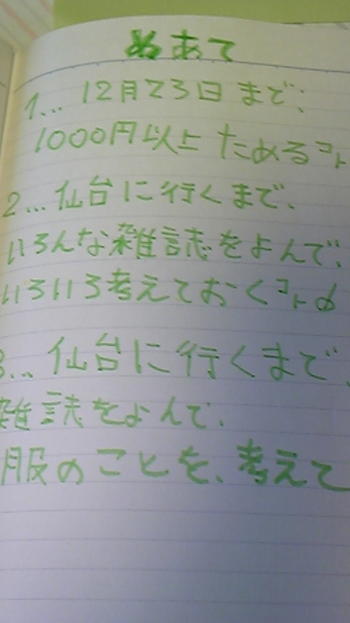 めあて
1... 12月23日まで、
1000円以上ためるコト
2... 仙台に行くまで、
いろんな雑誌をよんで、
いろいろ考えておくコト
3... 仙台に行くまで、
雑誌をよんで、
服のことを、考えて